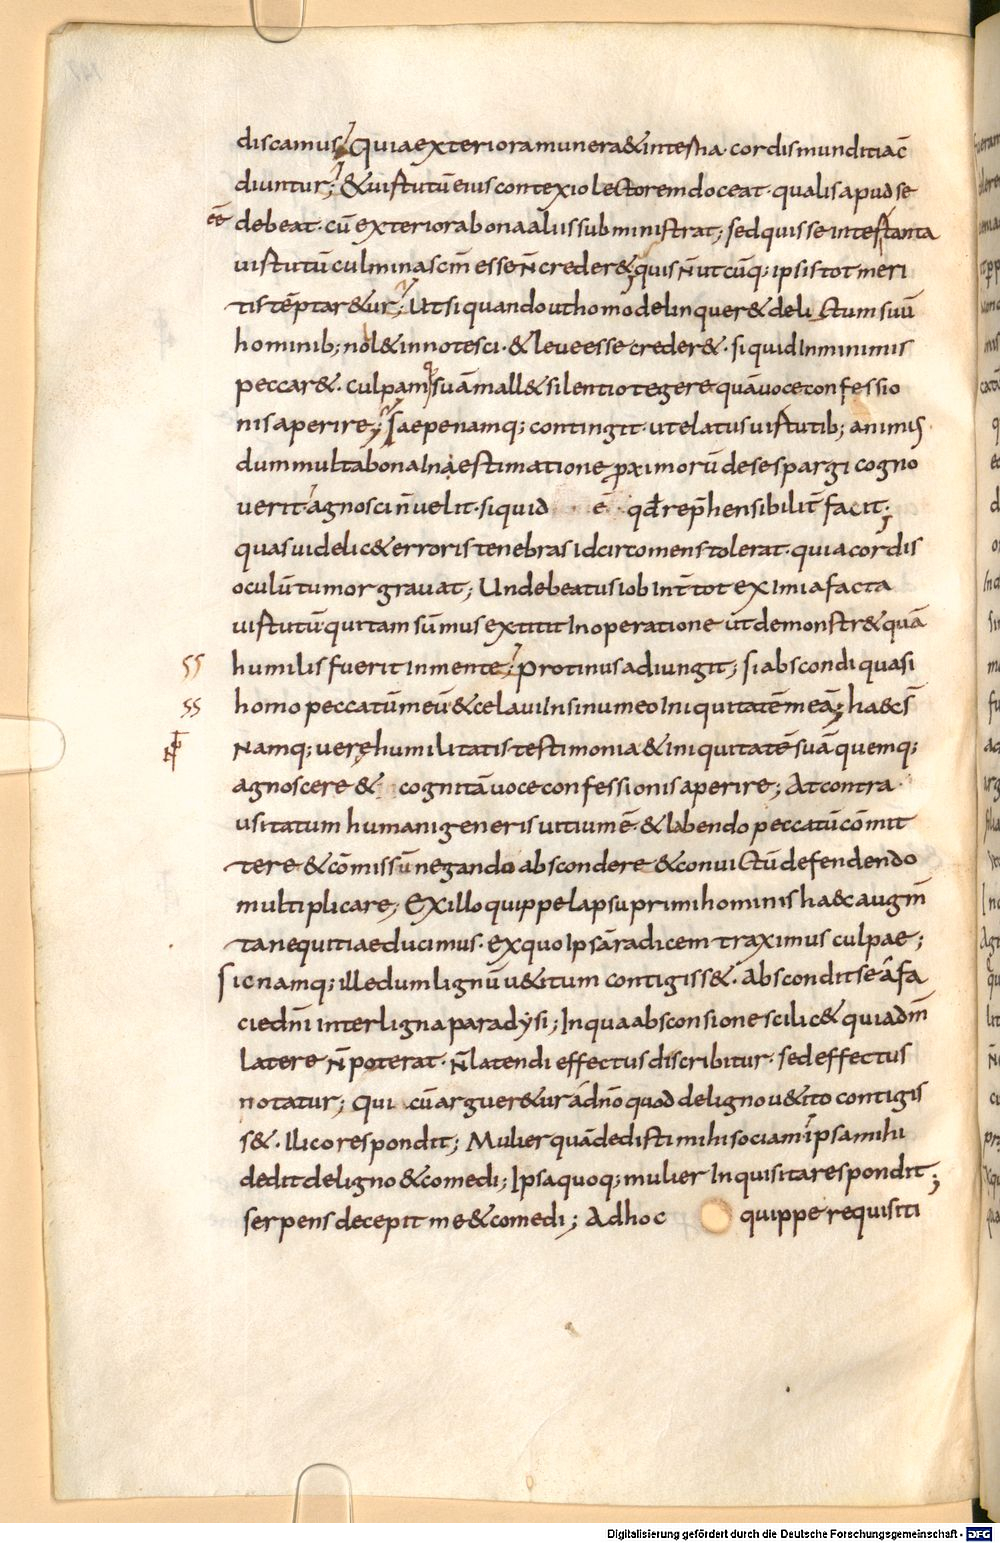 discamus; Quia exteriora munera & interna cordis munditia c̄
diuntur; & uirtutū eius contexio lectorem doceat· qualis apud se
eē debeat· cū exteriora bona aliis subministrat; sed quis se inter tanta
uirtutū culmina scm̄ esse n̄ creder&; quis n̄ utcūq; ipsis tot meri
tis tēptar&ur; Ut si quando ut homo delinquer& delictum suū
hominib; nol& innotesci· & leue esse creder&· si quid In minimis
peccar&· culpamq; suā mall& silentio tegere quā uoce confessio
nis aperire; Saepe namq; contingit· ut elatus uirtutib; animus
dum multa bona In aestimatione proximorū de se spargi cogno
uerit· agnosci n̄ uelit· siquid ē· qd̄ repr̄hensibilit̄ facit;
quas uidelic& erroris tenebras Idcirco mens tolerat· quia cordis
oculū tumor grauat; Unde beatus iob Int̄ tot eximia facta
uirtutū qui tam sūmus extitit In operatione ut demonstr& quā
ss humilis fuerit In mente; protinus adiungit; si abscondi quasi
ss homo peccatū meū & celaui In sinu meo Iniquitatē meā; haec s̄
Namq; uerę humilitatis testimonia & iniquitatē suā quemq;
agnoscere & cognitā uoce confessionis aperire; At contra
usitatum humani generis uitium ē· & labendo peccatū cōmit
tere & cōmissū negando abscondere & conuictū defendendo
multiplicare; Ex illo quippe lapsu primi hominis haec augm̄
ta nequitiae ducimus· ex quo Ipsā radicem traximus culpae;
Sic namq; ille dum lignū u&itum contigiss&· Abscondit se a fa
cie dn̄i inter ligna paradẏsi; In qua absconsione scilic& quia dm̄
latere n̄ poterat· n̄ latendi effectus discribitur· sed effectus
notatur; Qui cū arguer&ur a dn̄o quod de ligno u&ito contigis
s&· Ilico respondit; Mulier quā dedisti mihi sociam ipsa mihi
dedit de ligno & comedi; Ipsa quoq; mulier Inquisita respondit;
serpens decepit me & comedi; Ad hoc quippe requisiti
Digitalisierung gefördert durch die Deutsche Forschungsgemeinschaft - DFG